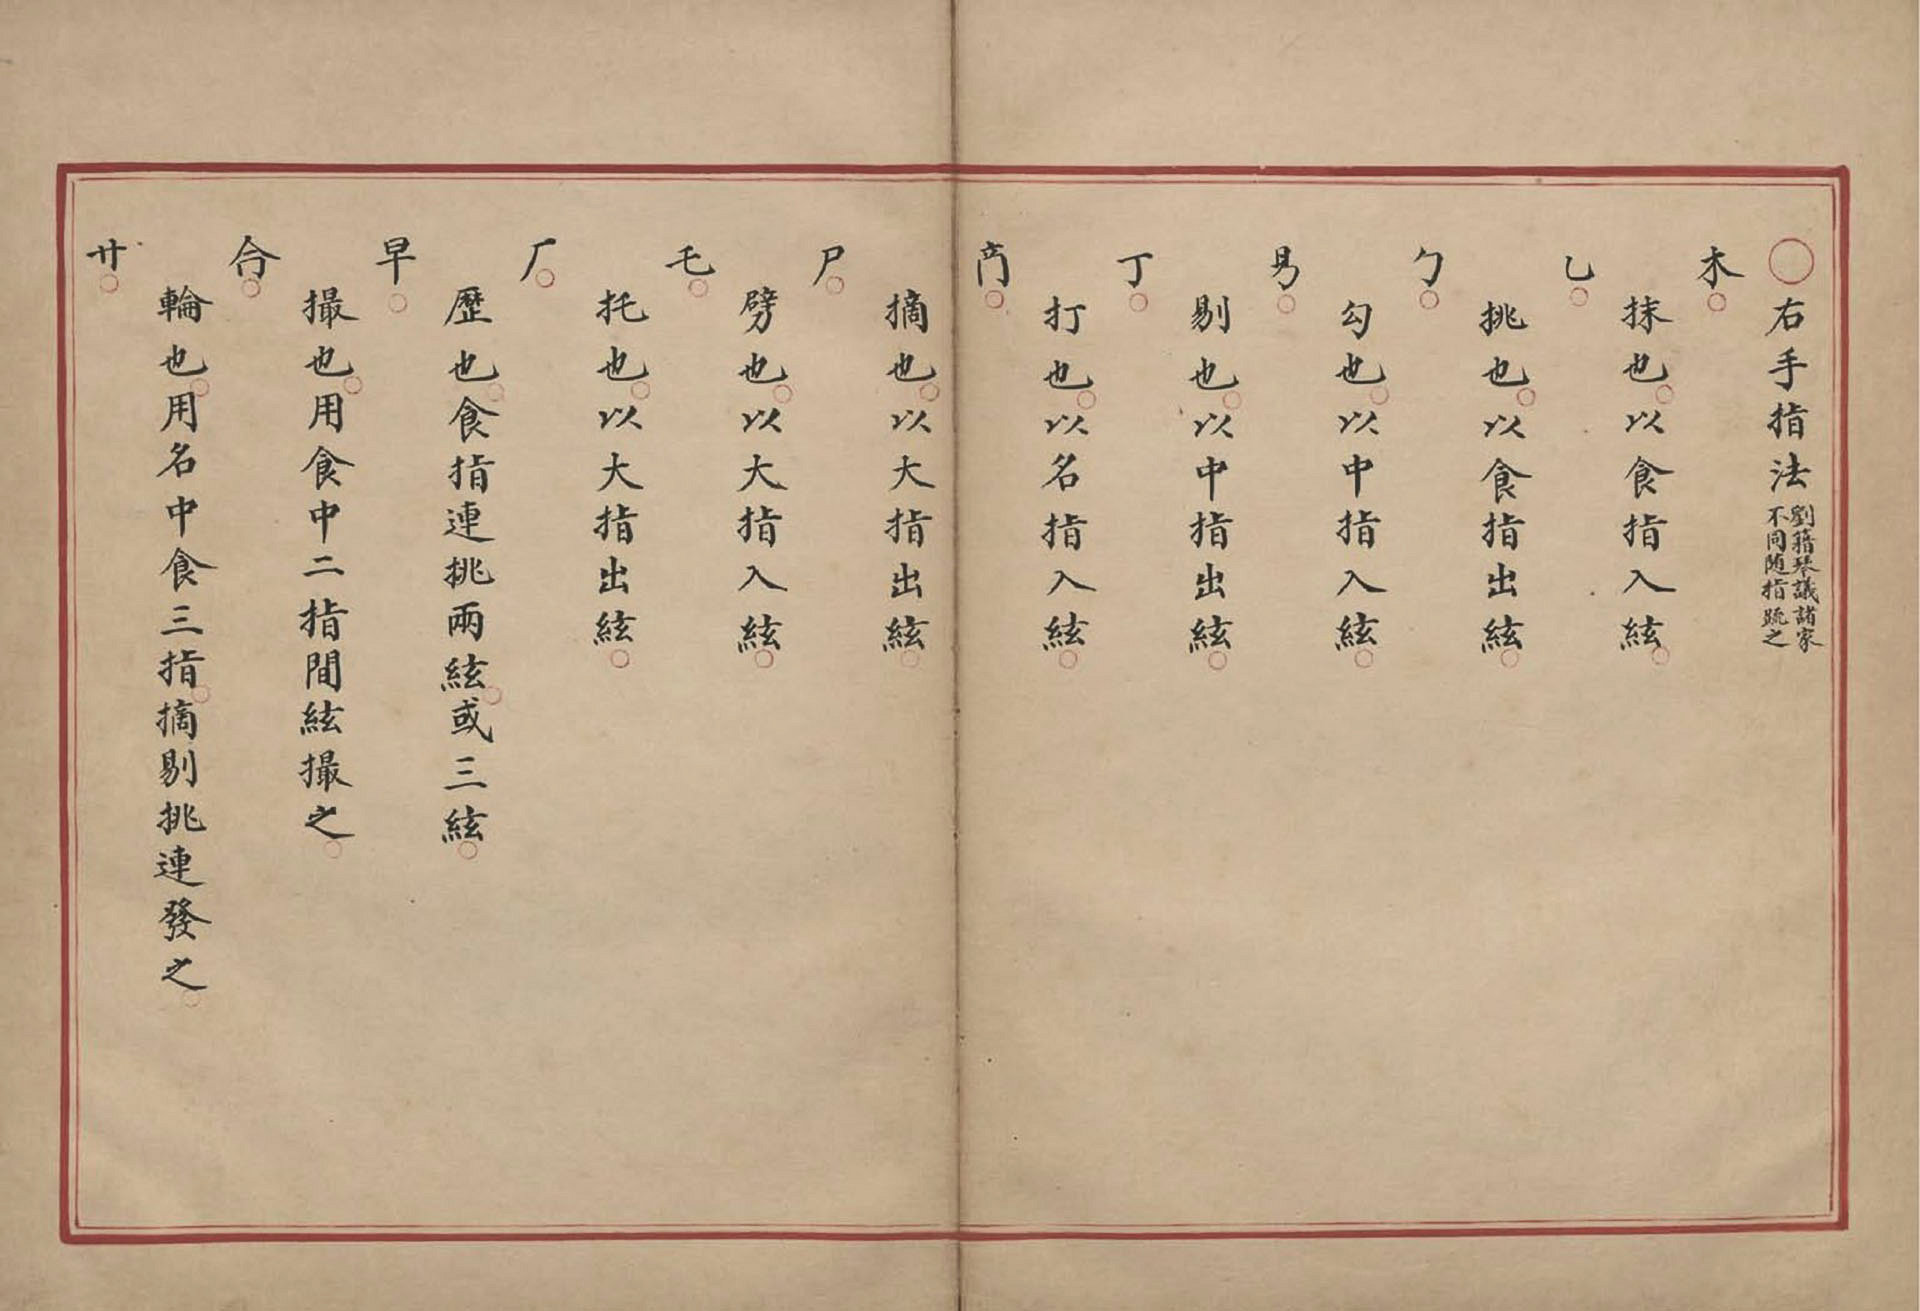 ○右手指法劉籍琴議諸家不同随指疏之
木
抹也以食指入絃
乚
挑也以食指出絃
勹
勾也以中指入絃
剔也以中指出絃
丁
打也以名指入絃
摘也以大指出絃
尸
劈也以大指入絃
乇
托也以大指出絃
厂
歷也食指連挑兩絃或三絃
早
撮也用食中二指間絃撮之
輪也用名中食三指摘剔挑連發之
廾